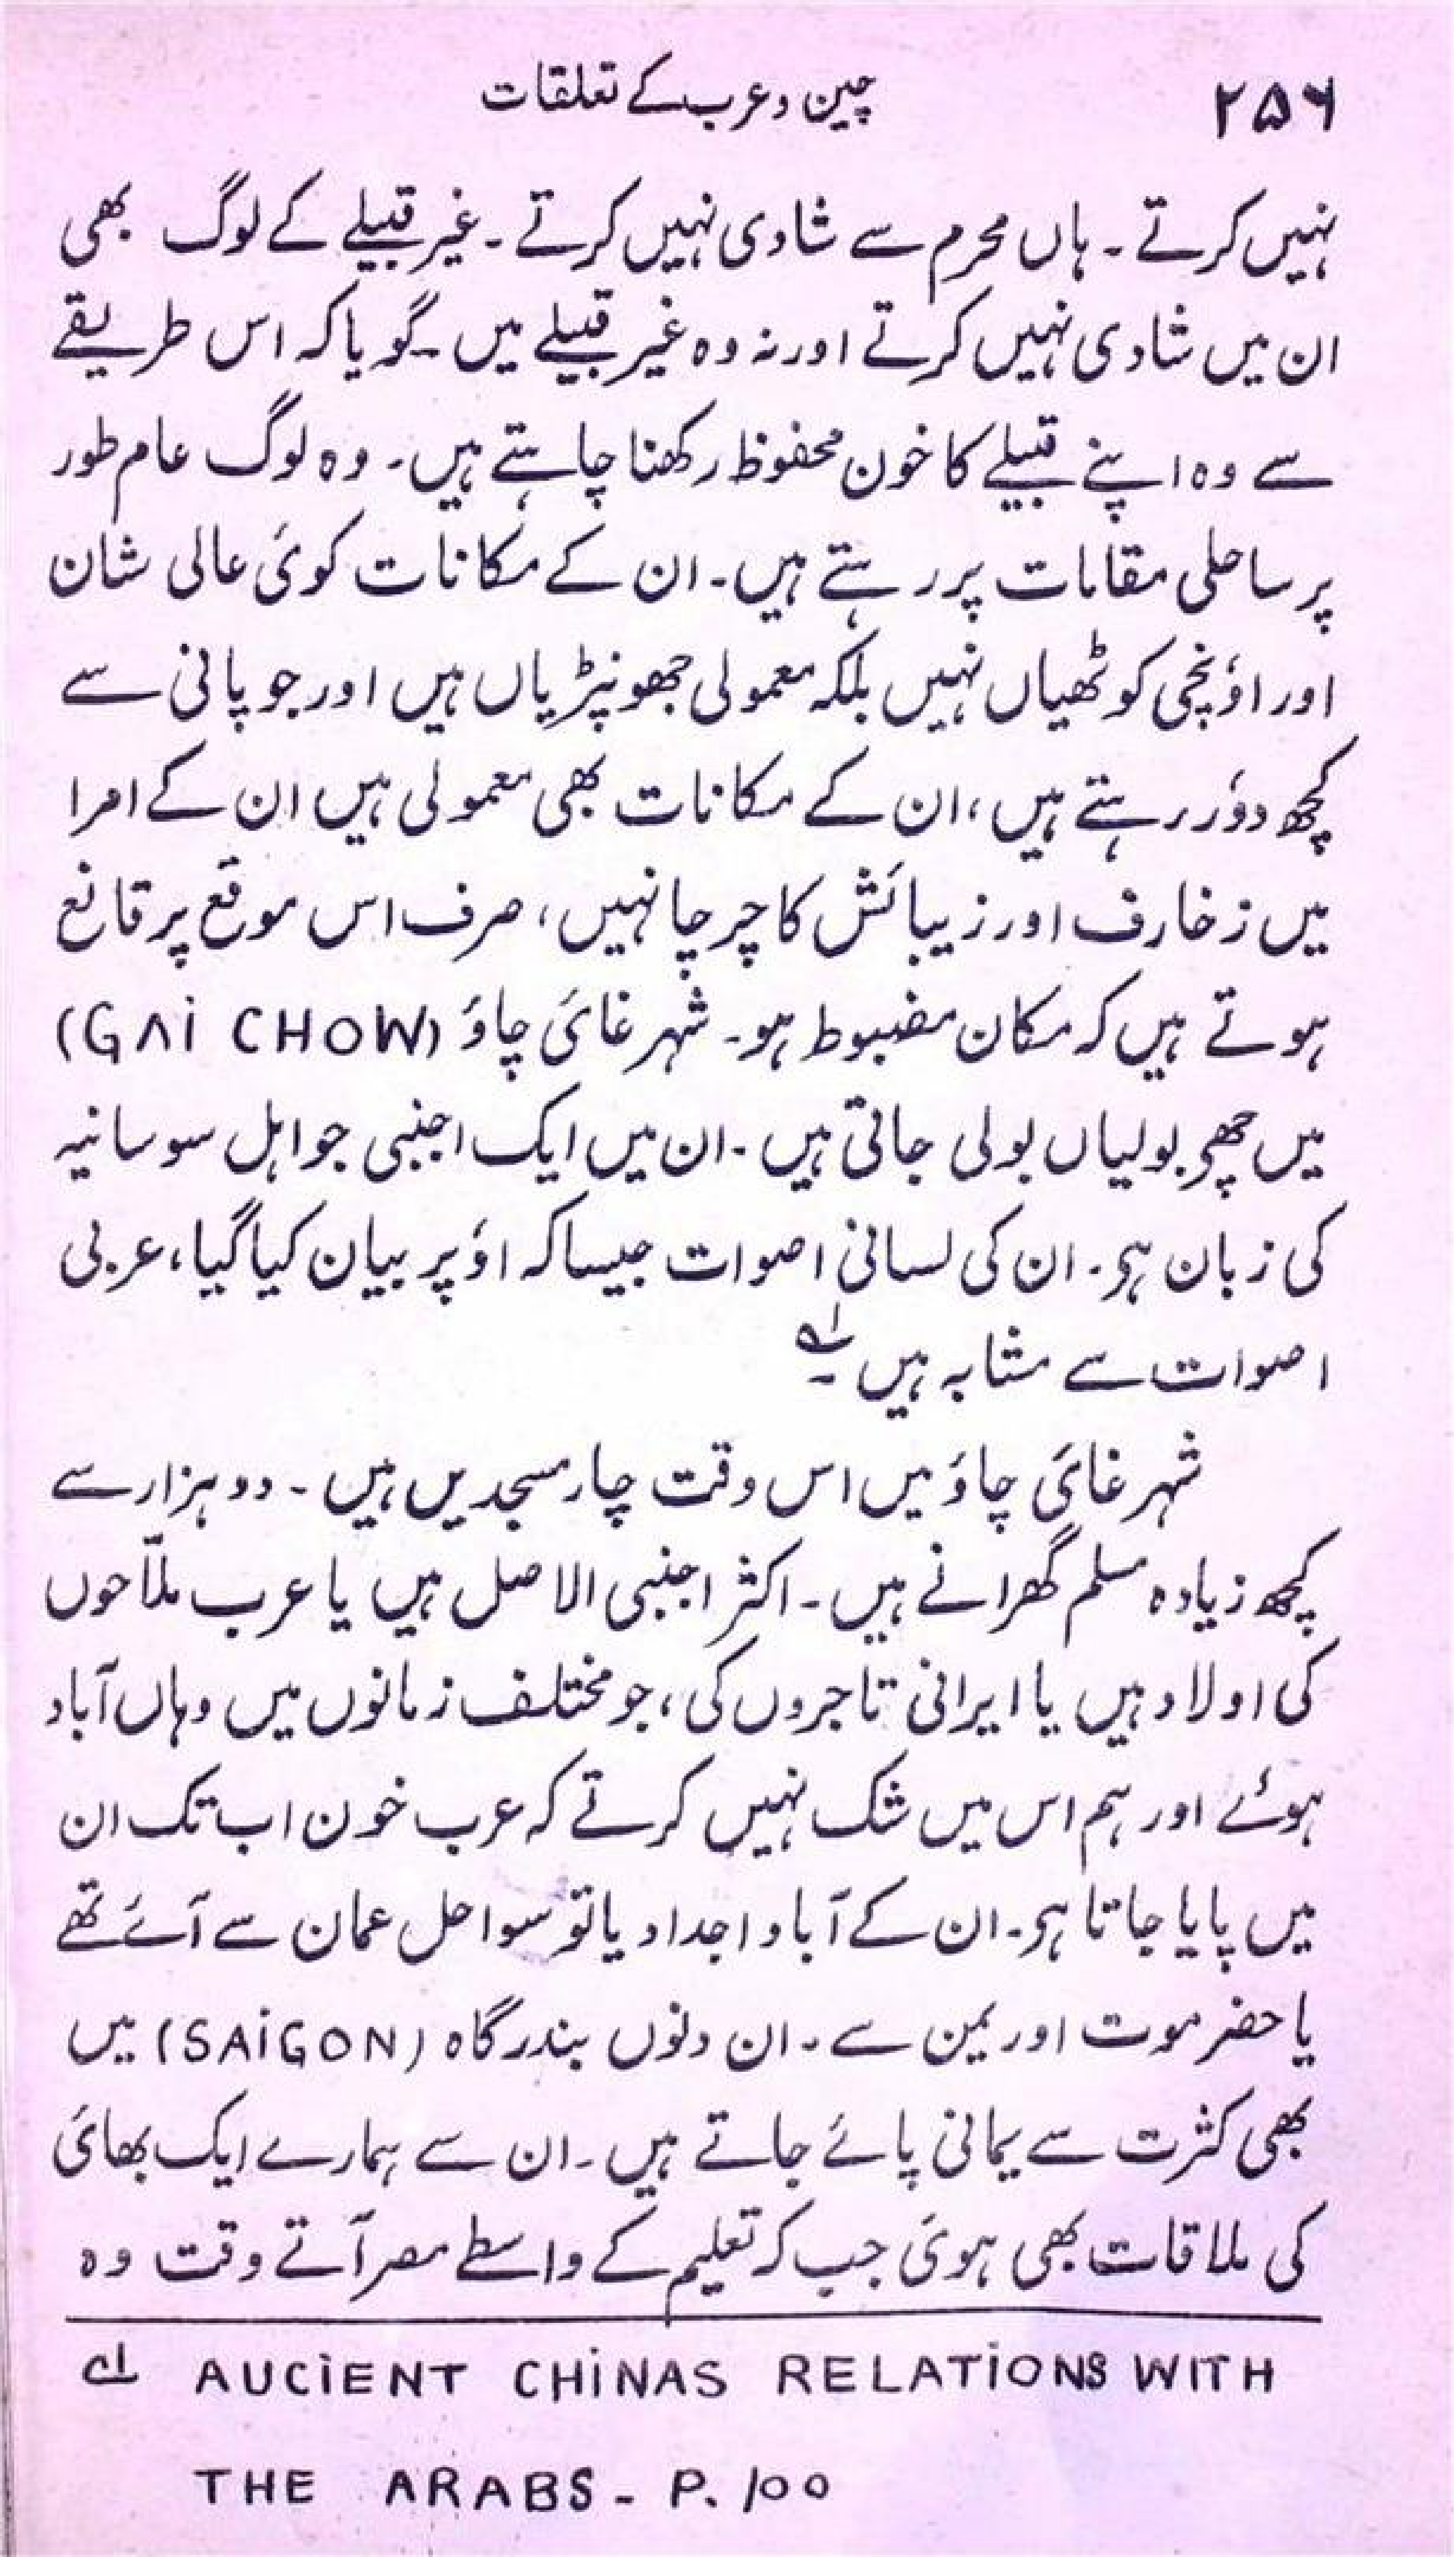 ۲۵۶ چین و عرب کے تعلقات
نہیں کرتے ۔ ہاں محرم سے شادی نہیں کرتے ۔ غیر قبیلے کے لوگ بھی
ان میں شادی نہیں کرتے اور نہ وہ غیر قبیلے میں ۔ گویا کہ اس طریقے
سے وہ اپنے قبیلے کا خون محفوظ رکھنا چاہتے ہیں ۔ وہ لوگ عام طور
پر ساحلی مقامات پر رہتے ہیں ۔ ان کے مکانات کوئی عالی شان
اور اوٗنچی کوٹھیاں نہیں بلکہ معمولی جھونپڑیاں ہیں اور جو پانی سے
کچھ دوٗر رہتے ہیں ، ان کے مکانات بھی معمولی ہیں ان کے امرا
میں زخارف اور زیبائش کا چرچا نہیں ، صرف اس موقع پر قانع
ہوتے ہیں کہ مکان مضبوط ہو ۔ شہر غائی چاؤ (GAi CHOW)
میں چھے بولیاں بولی جاتی ہیں ۔ ان میں ایک اجنبی جو اہل سوسانیہ
کی زبان ہی ۔ ان کی لسانی اصوات جیسا کہ اوٗپر بیان کیا گیا ، عربی
اصوات سے مشابہ ہیں ۔ لہ
شہر غائی چاؤ میں اس وقت چار مسجدیں ہیں ۔ دو ہزار سے
کچھ زیادہ مسلم گھرانے ہیں ۔ اکثر اجنبی الاصل ہیں یا عرب ملّاحوں
کی اولاد ہیں یا ایرانی تاجروں کی ، جو مختلف زمانوں میں وہاں آباد
ہوئے اور ہم اس میں شک نہیں کرتے کہ عرب خون اب تک ان
میں پایا جاتا ہی ۔ ان کے آبا و اجداد یا تو سواحل عمان سے آئے تھے
یا حضر موت اور یمن سے ۔ ان دنوں بندرگاہ (SAiGON) میں
بھی کثرت سے یمانی پائے جاتے ہیں ۔ ان سے ہمارے ایک بھائی
کی ملاقات بھی ہوئی جب کہ تعلیم کے واسطے مصر آتے وقت وہ
لہ AUCiENT CHiNAS RELATiONS WITH
THE ARABS - P. 100